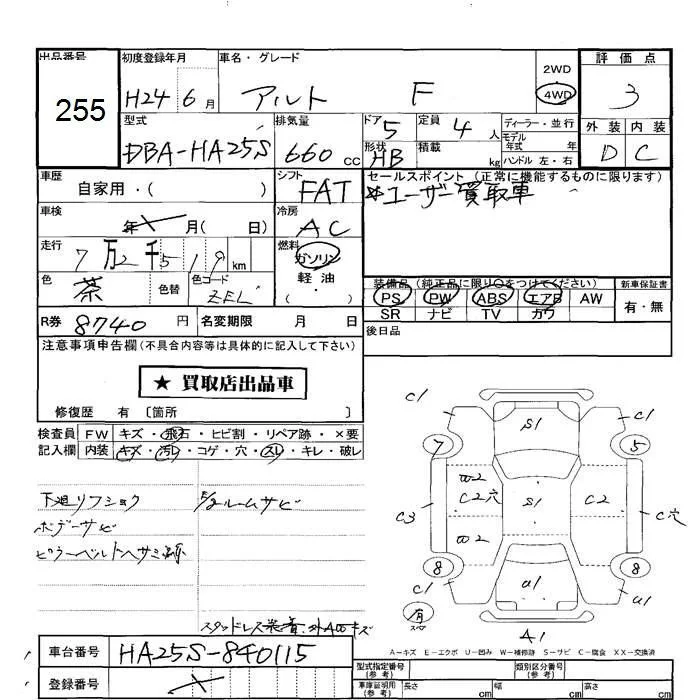 出品番号 初度登録年月 車名・グレード 2WD 評価点
255 H24 6月 アルト F 4WD 3
型式 排気量 ドア 5 定員 4人 ディーラー・並行 外装 内装
DBA-HA25S 660cc 形状 HB 積載 kg モデル年式 年式 D C
ハンドル 左・右
車歴 シフト セールスポイント (正常に機能するものに限ります)
自家用・( ) FAT ※ユーザー買取車
車検 年 月( 日) 冷房 AC
走行 7万2千519km 燃料 ガソリン
色 茶 色替 色コード ZEL 軽油
・( )
装備品(純正品に限り〇をつけてください) 新車保証書
PS PW ABS エアB AW 有・無
SR ナビ TV カワ
R券 8740円 名変期限 月 日 後日品
注意事項申告欄(不具合内容等は具体的に記入して下さい)
★ 買取店出品車
修復歴 有 〔箇所 〕
検査員 FW キズ・飛石・ヒビ割・リペア跡・×要
記入欄 内装 キズ・汚レ・コゲ・穴・スレ・キレ・破レ
下廻リフショク E/gルームサビ
ボデーサビ
スタッドレス装着 外AUキズ
C1 S1 C1
7 5
W2
C2穴 S1 C2
C3 C穴
W2
8 8
C1 U1 U1
有
スペア
A1
A-キズ E-エクボ U-凹み W-補修跡 S-サビ C-腐食 XX-交換済
車台番号 HA25S-840115
登録番号
型式指定番号(参考) 類別区分番号(参考)
車庫証明用(参考) 長さ cm 幅 cm 高さ cm